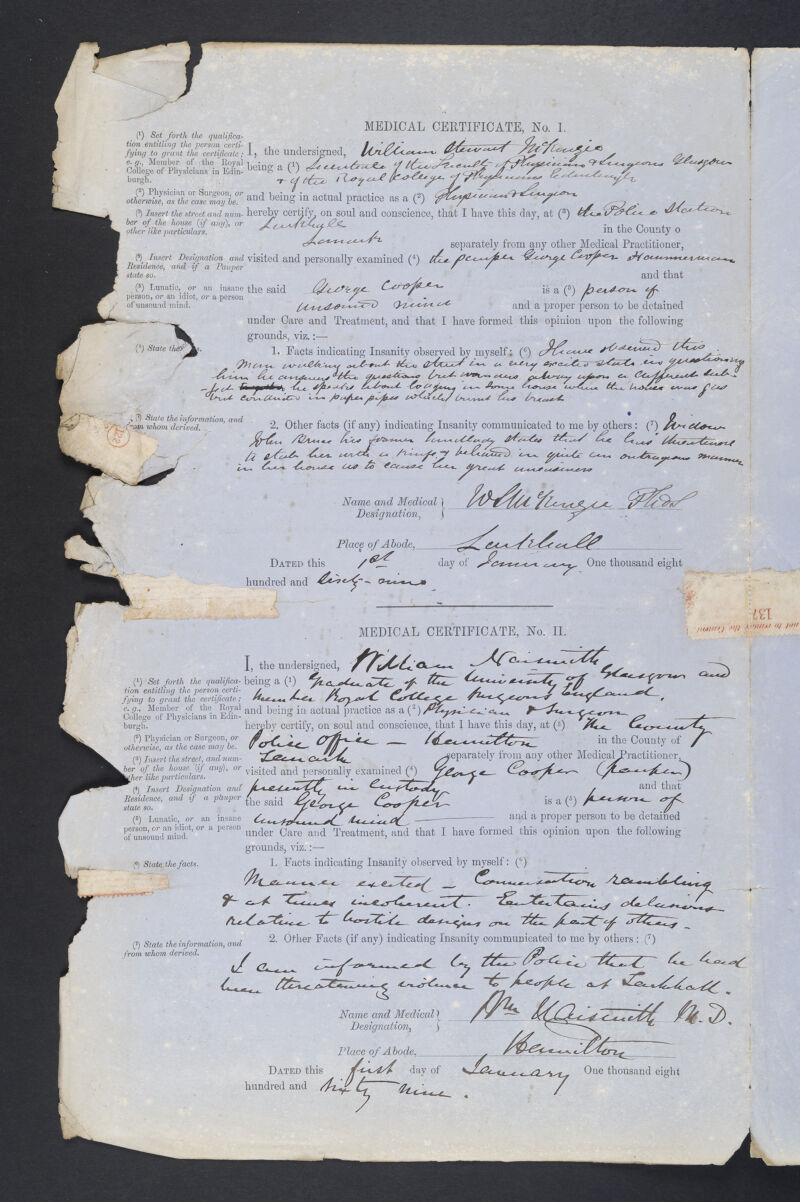 MEDICAL CERTIFICATE, No. I.
(¹) Set forth the qualifica-
tion entitling the person certi-
fying to grant the certificate;
e. g., Member of the Royal
College of Physicians in Edin-
burgh.
I, the undersigned, William Stewart McKenzie
being a (¹) Licentiate of the Faculty of Physicians & Surgeons Glasgow
& of the Royal College of Physicians Edinburgh
(²) Physician or Surgeon, or
otherwise, as the case may be.
and being in actual practice as a (²) Physician & Surgeon
(³) Insert the street and num-
ber of the house (if any), or
other like particulars.
hereby certify, on soul and conscience, that I have this day, at (³) the Police Station
Larkhall in the County o
Lanark separately from any other Medical Practitioner,
(⁴) Insert Designation and
Residence, and if a Pauper
state so.
visited and personally examined (⁴) the pauper George Cooper Hammerman
and that
(⁵) Lunatic, or an insane
person, or an idiot, or a person
of unsound mind.
the said George Cooper is a (⁵) person of
unsound mind and a proper person to be detained
under Care and Treatment, and that I have formed this opinion upon the following
grounds, viz.:—
(⁶) State the s.
1. Facts indicating Insanity observed by myself: (⁶) I have observed this
man walking about the street in a very excited state in questioning
him he answers the questions but wanders away upon a different sub-
-ject he speaks about lodging in some house when the house was gas
but conducted in paper pipes which burns his breast
(⁷) State the information, and
from whom derived.
2. Other facts (if any) indicating Insanity communicated to me by others: (⁷) Widow
John Bruce his former landlady states that he has threatened
to stab her with a knife & behaved in quite an outrageous manner
in her house as to cause her great uneasiness
Name and Medical
Designation,
W S McKenzie
Place of Abode, Larkhall
DATED this 1st day of January One thousand eight
hundred and sixty-nine.
137
MEDICAL CERTIFICATE, No. II.
(¹) Set forth the qualifica-
tion entitling the person certi-
fying to grant the certificate:
e. g., Member of the Royal
College of Physicians in Edin-
burgh.
I, the undersigned, William Naismith
being a (¹) Graduate of the University of Glasgow and
Member Royal College Surgeons England
(²) Physician or Surgeon, or
otherwise, as the case may be.
and being in actual practice as a (²) Physician & Surgeon
(³) Insert the street, and num-
ber of the house (if any), or
other like particulars.
hereby certify, on soul and conscience, that I have this day, at (³) the County
Police Office — Hamilton in the County of
Lanark separately from any other Medical Practitioner,
(⁴) Insert Designation and
Residence, and if a pauper
state so.
visited and personally examined (⁴) George Cooper (pauper)
presently in Custody and that
the said George Cooper is a (⁵) person of
(⁵) Lunatic, or an insane
person, or an idiot, or a person
of unsound mind.
unsound mind — and a proper person to be detained
under Care and Treatment, and that I have formed this opinion upon the following
grounds, viz.:—
(⁶) State the facts.
1. Facts indicating Insanity observed by myself: (⁶)
Manner excited — Conversation rambling
& at times incoherent. Entertains delusions
relative to hostile designs on the part of others.
(⁷) State the information, and
from whom derived.
2. Other Facts (if any) indicating Insanity communicated to me by others: (⁷)
I am informed by the Police that he had
been threatening violence to people at Larkhall.
Name and Medical
Designation,
Wm Naismith M.D.
Place of Abode, Hamilton
DATED this first day of January One thousand eight
hundred and sixty nine.